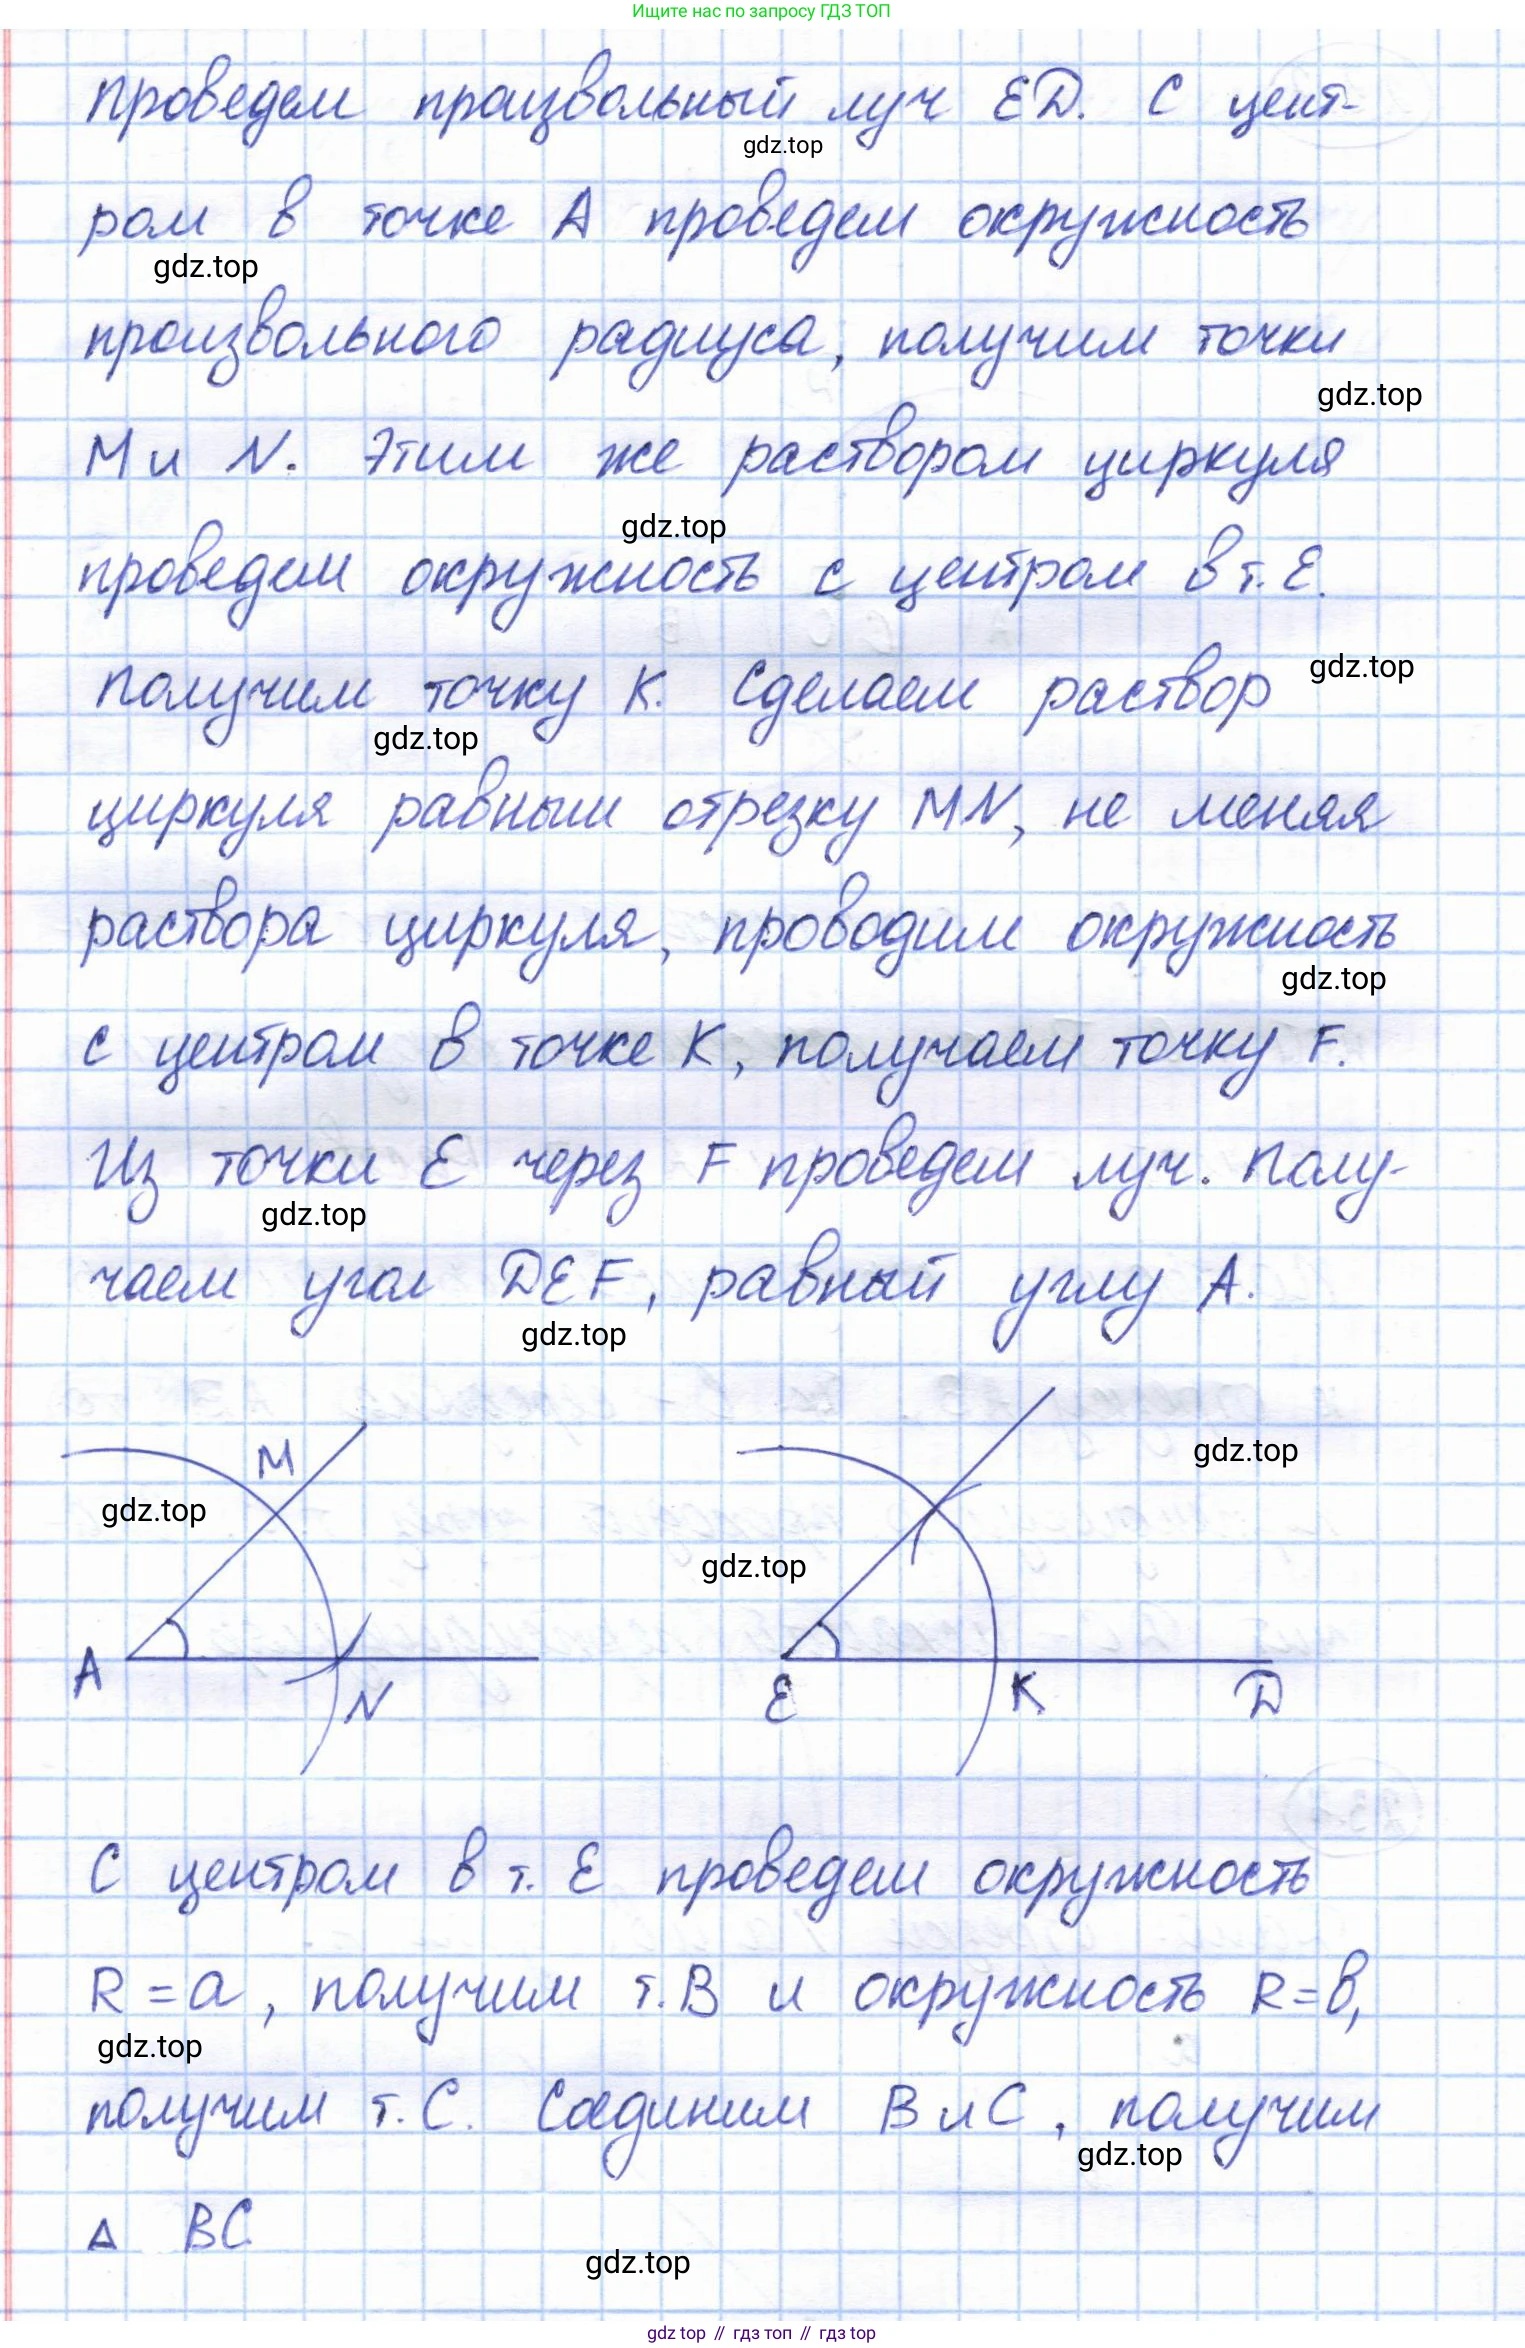 Ищите нас по запросу ГДЗ ТОП
Проведем произвольный луч ED. С цент-
gdz.top
ром в точке A проведем окружность
gdz.top
произвольного радиуса, получим точки
gdz.top
M и N. Этим же раствором циркуля
gdz.top
проведем окружность с центром в т. E.
Получим точку K. Сделаем раствор
gdz.top
gdz.top
циркуля равным отрезку MN, не меняя
раствора циркуля, проводим окружность
gdz.top
с центром в точке K, получаем точку F.
Из точки E через F проведем луч. Полу-
gdz.top
чаем угол DEF, равный углу A.
gdz.top
M
gdz.top
gdz.top
gdz.top
A
N
E
K
D
С центром в т. E проведем окружность
R = a, получим т. B и окружность R = b,
gdz.top
получим т. C. Соединим B и C, получим
gdz.top
Δ BC
gdz.top
gdz top // гдз топ // gdz top